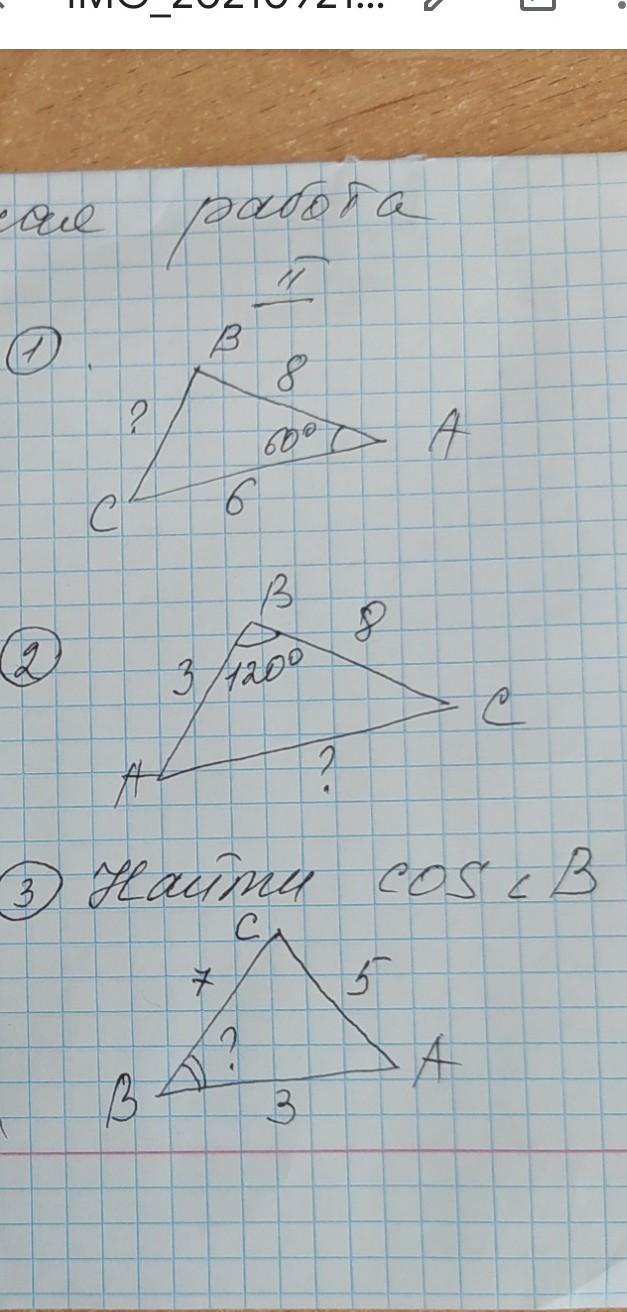 работа
II
1
B
8
?
60°
A
C
6
2
B
8
3
120°
C
A
?
3 Найти cos ∠B
C
7
5
?
A
B
3